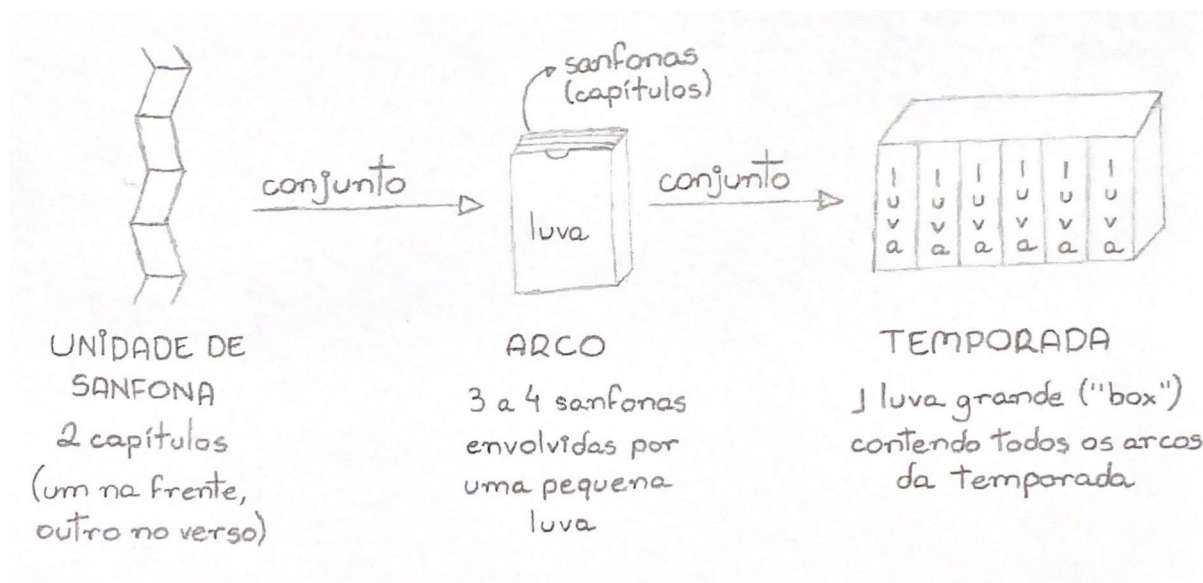 sanfonas
(capítulos)
conjunto
luva
conjunto
luva
luva
luva
luva
luva
luva
UNIDADE DE
SANFONA
2 capítulos
(um na frente,
outro no verso)
ARCO
3 a 4 sanfonas
envolvidas por
uma pequena
luva
TEMPORADA
1 luva grande ("box")
contendo todos os arcos
da temporada